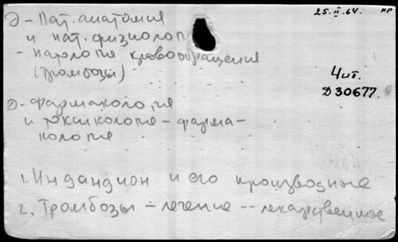 Э - Пат. анатомия
25.II.64.
нр
и пат. физиология
- патология кровообращения
(Тромбозы)
Чит.
Д30677.
Э - Фармакология
и токсикология - фарма-
кология
1. Индандион и его производные
2. Тромбозы - лечение -- лекарственное